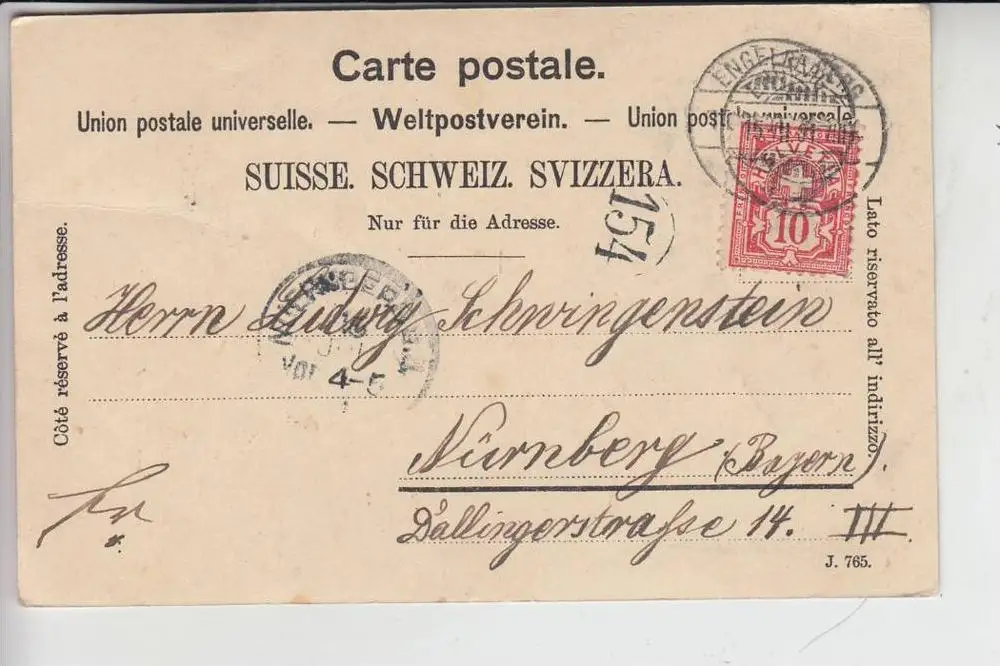 Carte postale.
Union postale universelle. — Weltpostverein. — Union postale universale
SUISSE. SCHWEIZ. SVIZZERA.
Nur für die Adresse.
Côté réservé à l'adresse.
Lato riservato all' indirizzo.
ENGELBERG
HELVETIA
10
154
NUERNBERG
Vor 4-5
Herrn Ludwig Schwingenstein
Nürnberg (Bayern).
Dallingerstrasse 14. III.
J. 765.